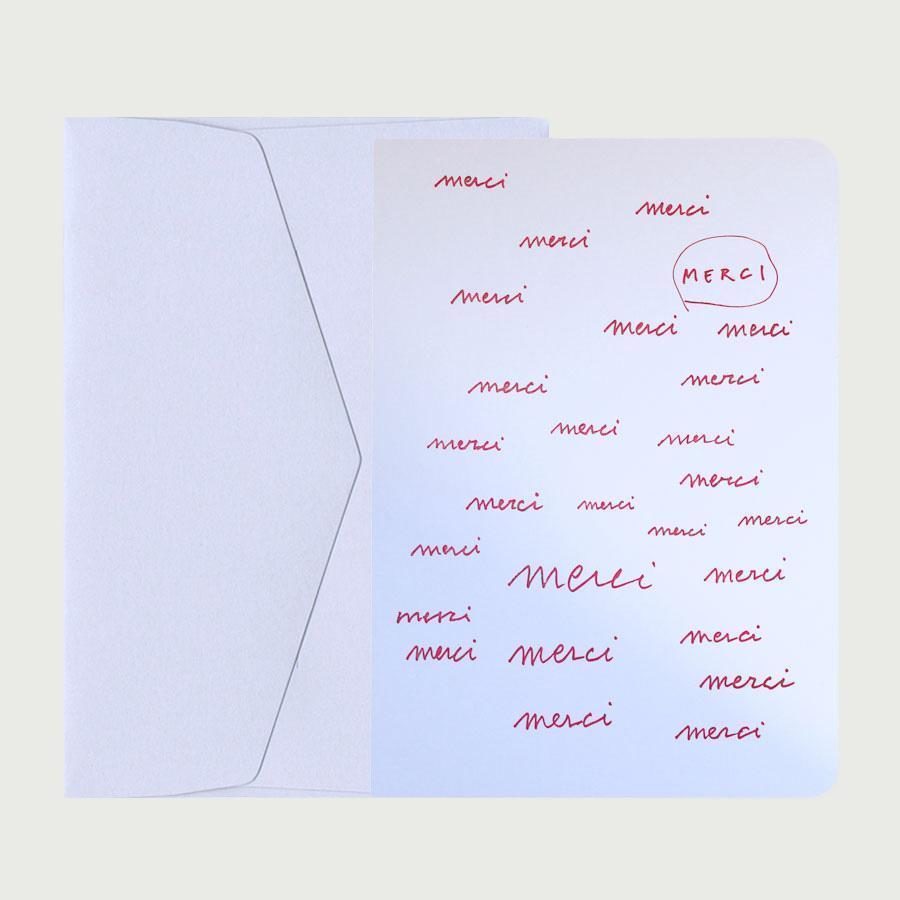 merci
merci
merci
MERCI
merci
merci merci
merci merci
merci
merci merci
merci
merci merci
merci merci
merci
merci merci
merci
merci
merci merci
merci
merci
merci